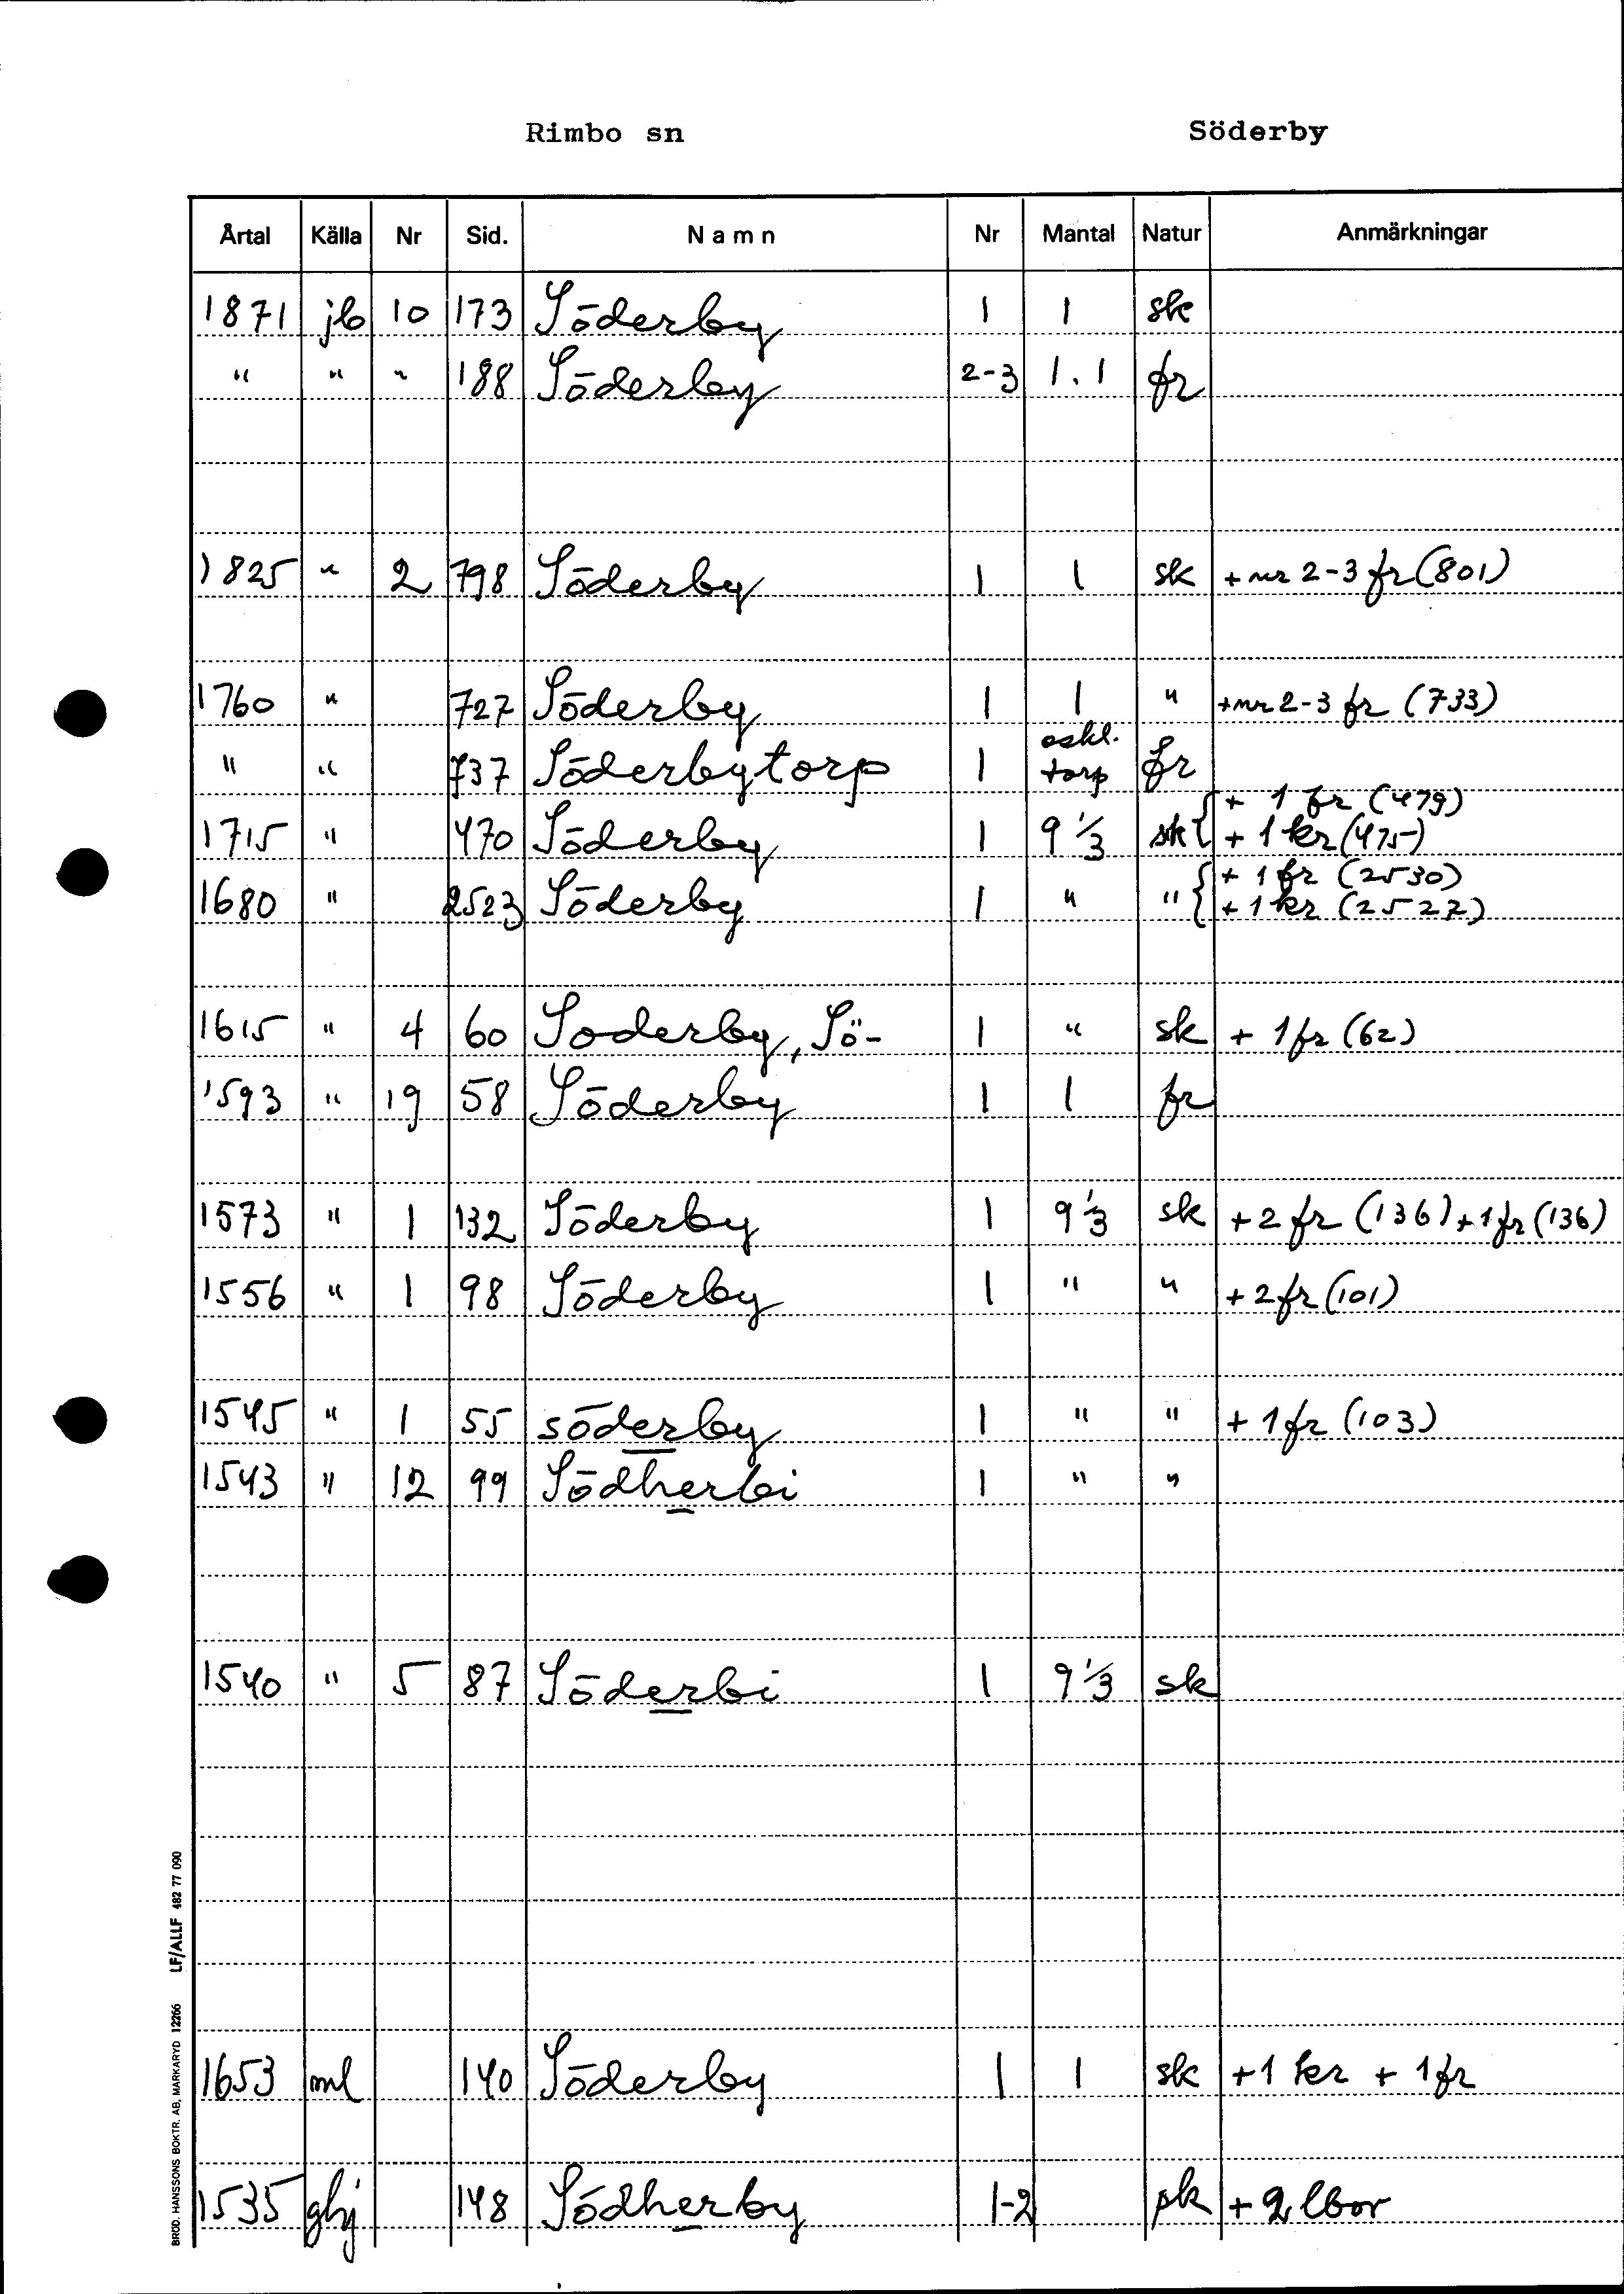 Rimbo sn Söderby
Årtal Källa Nr Sid. Namn Nr Mantal Natur Anmärkningar
1871 jb 10 173 Söderby 1 1 sk
" " " 188 Söderby 2-3 1.1 fr
1825 " 2 798 Söderby 1 1 sk + nr 2-3 fr (801)
1760 " 727 Söderby 1 1 " + nr 2-3 fr (733)
" " 737 Söderbytorp 1 oskl. torp fr
1715 " 470 Söderby 1 9 1/3 sk { + 1 fr (479)
+ 1 kr (475)
1680 " 2523 Söderby 1 " " { + 1 fr (2530)
+ 1 kr (2527)
1615 " 4 60 Soderby, Sö- 1 " sk + 1 fr (62)
1593 " 19 58 Söderby 1 1 fr
1573 " 1 132 Söderby 1 9 1/3 sk + 2 fr (136) + 1 fr (136)
1556 " 1 98 Söderby 1 " " + 2 fr (101)
1545 " 1 55 söderby 1 " " + 1 fr (103)
1543 " 12 99 Södherbi 1 " "
1540 " 5 87 Söderbi 1 9 1/3 sk
1653 ml 140 Söderby 1 1 sk + 1 kr + 1 fr
1535 ghj 148 Södherby 1-2 pk + 2 lbor
BRÖD. HANSSONS BOKTR. AB, MARKARYD 12266 LF/ALLF 482 77 090